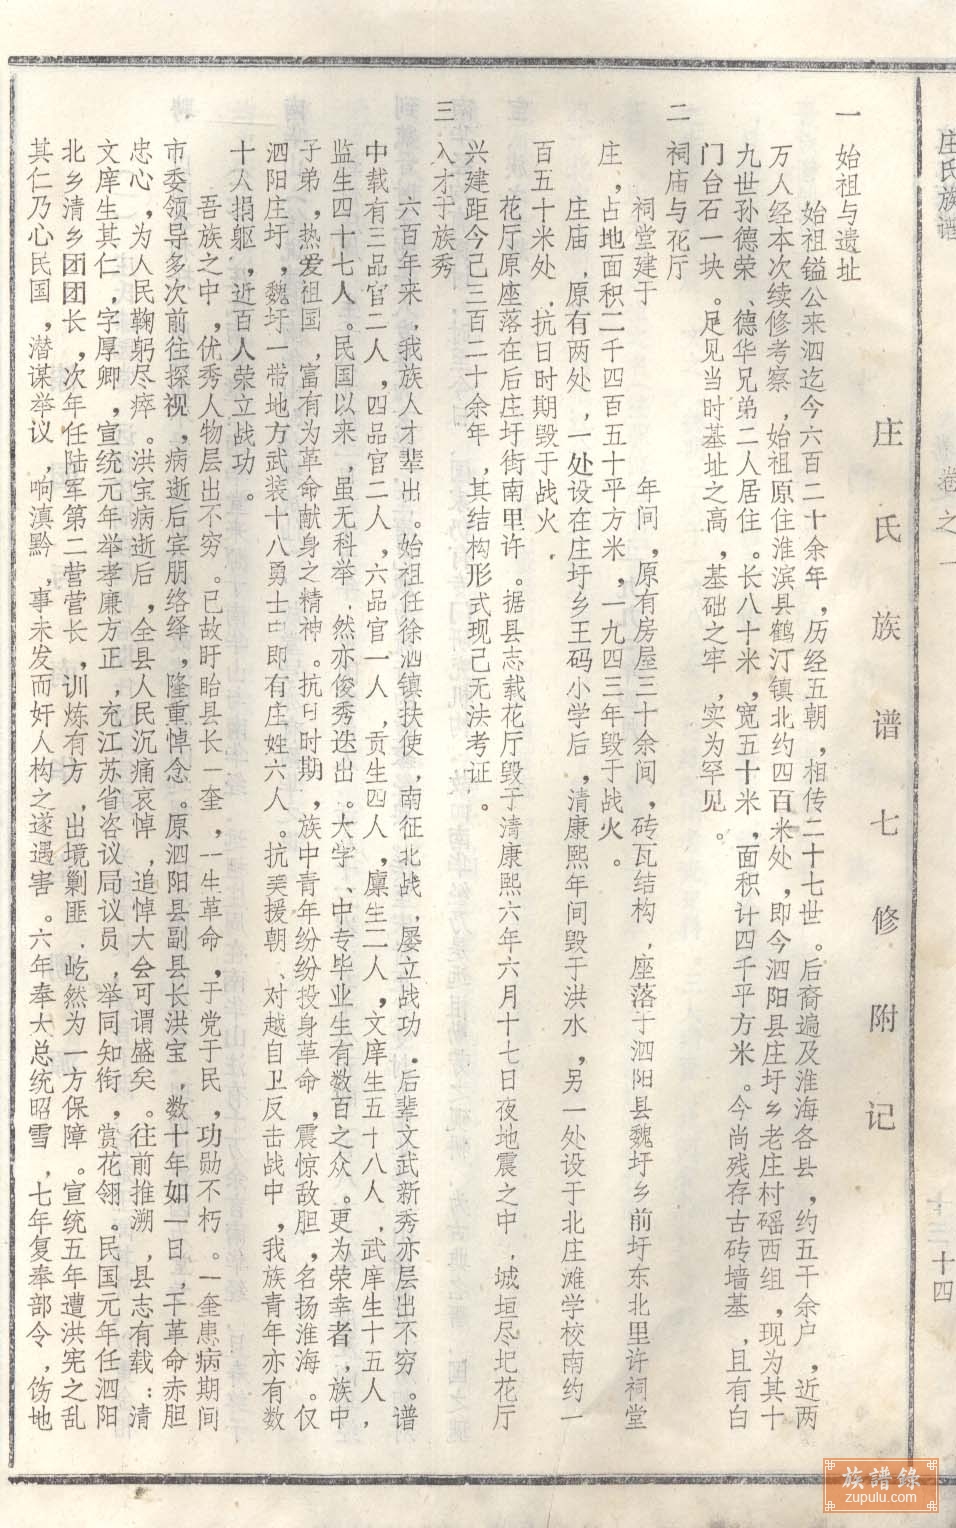 庄氏族谱
卷之一
十四
庄氏族谱七修附记
一 始祖与遗址
始祖镒公来泗迄今六百二十余年，历经五朝，相传二十七世。后裔遍及淮海各县，约五千余户，近两
万人经本次续修考察，始祖原住淮滨县鹤汀镇北约四百米处，即今泗阳县庄圩乡老庄村磘西组，现为其十
九世孙德荣、德华兄弟二人居住。长八十米，宽五十米，面积计四千平方米。今尚残存古砖墙基，且有白
门台石一块。足见当时基址之高，基础之牢，实为罕见。
二 祠庙与花厅
祠堂建于 年间，原有房屋三十余间，砖瓦结构，座落于泗阳县魏圩乡前圩东北里许祠堂
庄，占地面积二千四百五十平方米，一九四三年毁于战火。
庄庙，原有两处，一处设在庄圩乡王码小学后，清康熙年间毁于洪水，另一处设于北庄滩学校南约一
百五十米处，抗日时期毁于战火
花厅原座落在后庄圩街南里许。据县志载花厅毁于清康熙六年六月十七日夜地震之中，城垣尽圯花厅
兴建距今己三百二十余年，其结构形式现己无法考证。
三 人才于族秀
六百年来，我族人才辈出。始祖任徐泗镇扶使，南征北战，屡立战功．后辈文武新秀亦层出不穷。谱
中载有三品官二人，四品官二人，六品官一人，贡生四人，廪生二人，文庠生五十八人，武庠生十五人，
监生四十七人。民国以来，虽无科举，然亦俊秀迭出。大学、中专毕业生有数百之众。更为荣幸者，族中
子弟，热爱祖国，富有为革命献身之精神。抗日时期，族中青年纷纷投身革命，震惊敌胆，名扬淮海。仅
泗阳庄圩，魏圩一带地方武装十八勇士中即有庄姓六人。抗美援朝、对越自卫反击战中，我族青年亦有数
十人捐躯，近百人荣立战功。
吾族之中，优秀人物层出不穷。已故盱眙县长一奎，一生革命，于党于民，功勋不朽。一奎患病期间
市委领导多次前往探视，病逝后宾朋络绎，隆重悼念。原泗阳县副县长洪宝，数十年如一日，干革命赤胆
忠心，为人民鞠躬尽瘁。洪宝病逝后，全县人民沉痛哀悼，追悼大会可谓盛矣。往前推溯，县志有载：清
文庠生其仁，字厚卿，宣统元年举孝廉方正，充江苏省咨议局议员，举同知衔，赏花翎。民国元年任泗阳
北乡清乡团团长，次年任陆军第二营营长，训炼有方，出境剿匪，屹然为一方保障。宣统五年遭洪宪之乱
其仁乃心民国，潜谋举议，响滇黔，事未发而奸人构之遂遇害。六年奉大总统昭雪，七年复奉部令，饬地
族譜錄
zupulu.com